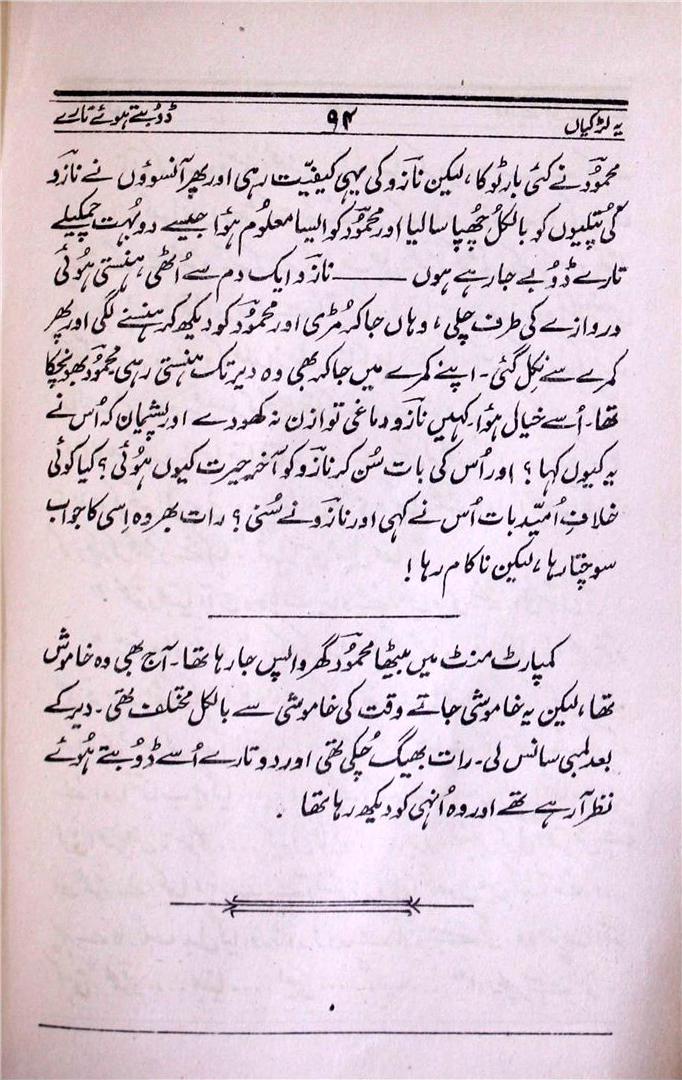 یہ لڑکیاں ۹۴ ڈوبتے ہوئے تارے
محمودؔ نے کئی بار ٹوکا، لیکن نازوؔ کی یہی کیفیّت رہی اور پھر آنسوؤں نے نازوؔ
کی پُتلیوں کو بالکل چُھپا سا لیا اور محمودؔ کو ایسا معلُوم ہوُا جیسے دو بہُت چمکیلے
تارے ڈوُبے جا رہے ہوں ——— نازوؔ ایک دم سے اُٹھی، ہنستی ہوُئی
دروازے کی طرف چلی، وہاں جا کر مُڑی اور محمودؔ کو دیکھ کر ہنسنے لگی اور پھر
کمرے سے نِکل گئی۔ اپنے کمرے میں جا کر بھی وہ دیر تک ہنستی رہی۔ محمودؔ بھونچکا
تھا۔ اُسے خیال ہوُا۔ کہیں نازوؔ دماغی توازن نہ کھو دے اور پشیمان کہ اُس نے
یہ کیوں کہا؟ اور اُس کی بات سُن کر نازوؔ کو آخر حیرت کیوں ہوُئی؟ کیا کوئی
خلافِ اُمیّد بات اُس نے کہی اور نازوؔ نے سُنی؟ رات بھر وہ اِسی کا جواب
سوچتا رہا، لیکن ناکام رہا!
کمپارٹ منٹ میں بیٹھا محمودؔ گھر واپس جا رہا تھا۔ آج بھی وہ خاموش
تھا، لیکن یہ خاموشی جاتے وقت کی خاموشی سے بالکل مختلف تھی۔ دیر کے
بعد لمبی سانس لی۔ رات بھیگ چُکی تھی اور دو تارے اُسے ڈوُبتے ہوُئے
نظر آ رہے تھے اور وہ اُنہی کو دیکھ رہا تھا۔